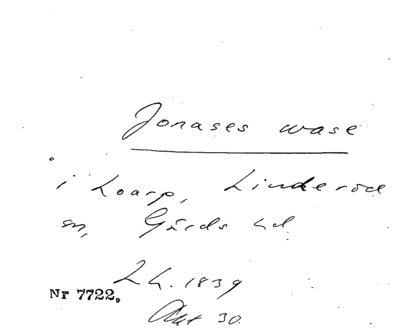 Jonases wase
i Loarp, Linderöd
sn, Gärds hd.
L h. 1839
Nr 7722.
Akt 30.